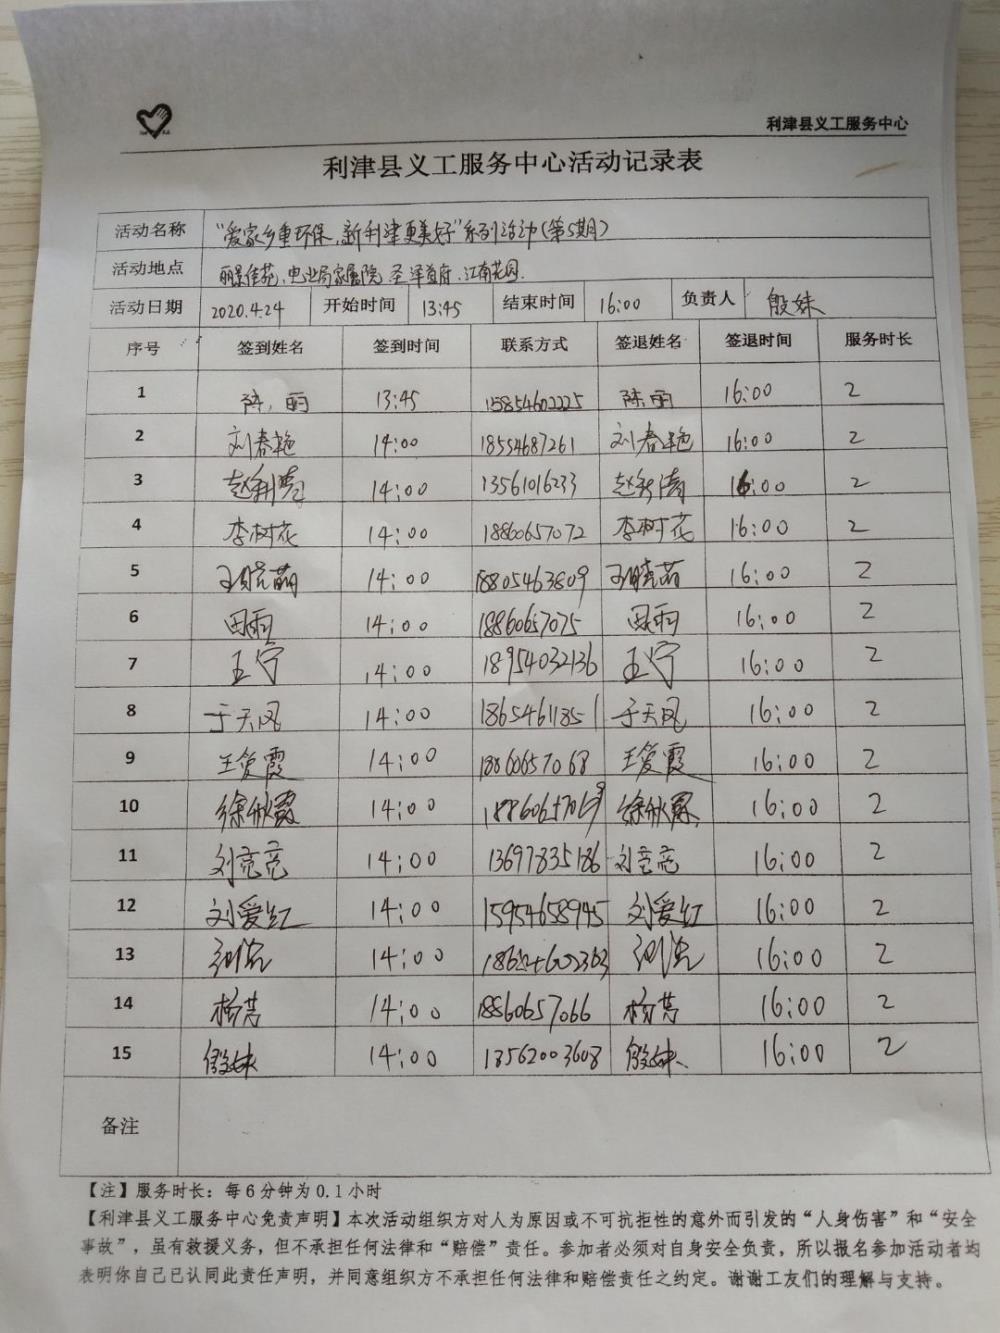 利津县义工服务中心
利津县义工服务中心活动记录表
活动名称 “爱家乡重环保,新利津更美好”系列活动(第5期)
活动地点 丽景佳苑、电业局家属院、圣泽首府、江南花园.
活动日期 2020.4.24 开始时间 13:45 结束时间 16:00 负责人 殷妹
序号 签到姓名 签到时间 联系方式 签退姓名 签退时间 服务时长
1 陈丽 13:45 15854602225 陈丽 16:00 2
2 刘春艳 14:00 18554687261 刘春艳 16:00 2
3 14:00 13561016233 16:00 2
4 李树花 14:00 18860657072 李树花 16:00 2
5 王晓萌 14:00 18805463809 王晓萌 16:00 2
6 田雨 14:00 18860657075 田雨 16:00 2
7 王宁 14:00 18954032136 王宁 16:00 2
8 于天凤 14:00 18654611351 于天凤 16:00 2
9 王爱霞 14:00 18860657068 王爱霞 16:00 2
10 徐秋霞 14:00 16:00 2
11 刘亮亮 14:00 13697835186 刘亮亮 16:00 2
12 刘爱红 14:00 15954658945 刘爱红 16:00 2
13 14:00 16:00 2
14 杨芳 14:00 18860657066 杨芳 16:00 2
15 殷妹 14:00 13562003608 殷妹 16:00 2
备注
【注】服务时长：每6分钟为0.1小时
【利津县义工服务中心免责声明】本次活动组织方对人为原因或不可抗拒性的意外而引发的“人身伤害”和“安全
事故”，虽有救援义务，但不承担任何法律和“赔偿”责任。参加者必须对自身安全负责，所以报名参加活动者均
表明你自己已认同此责任声明，并同意组织方不承担任何法律和赔偿责任之约定。谢谢工友们的理解与支持。